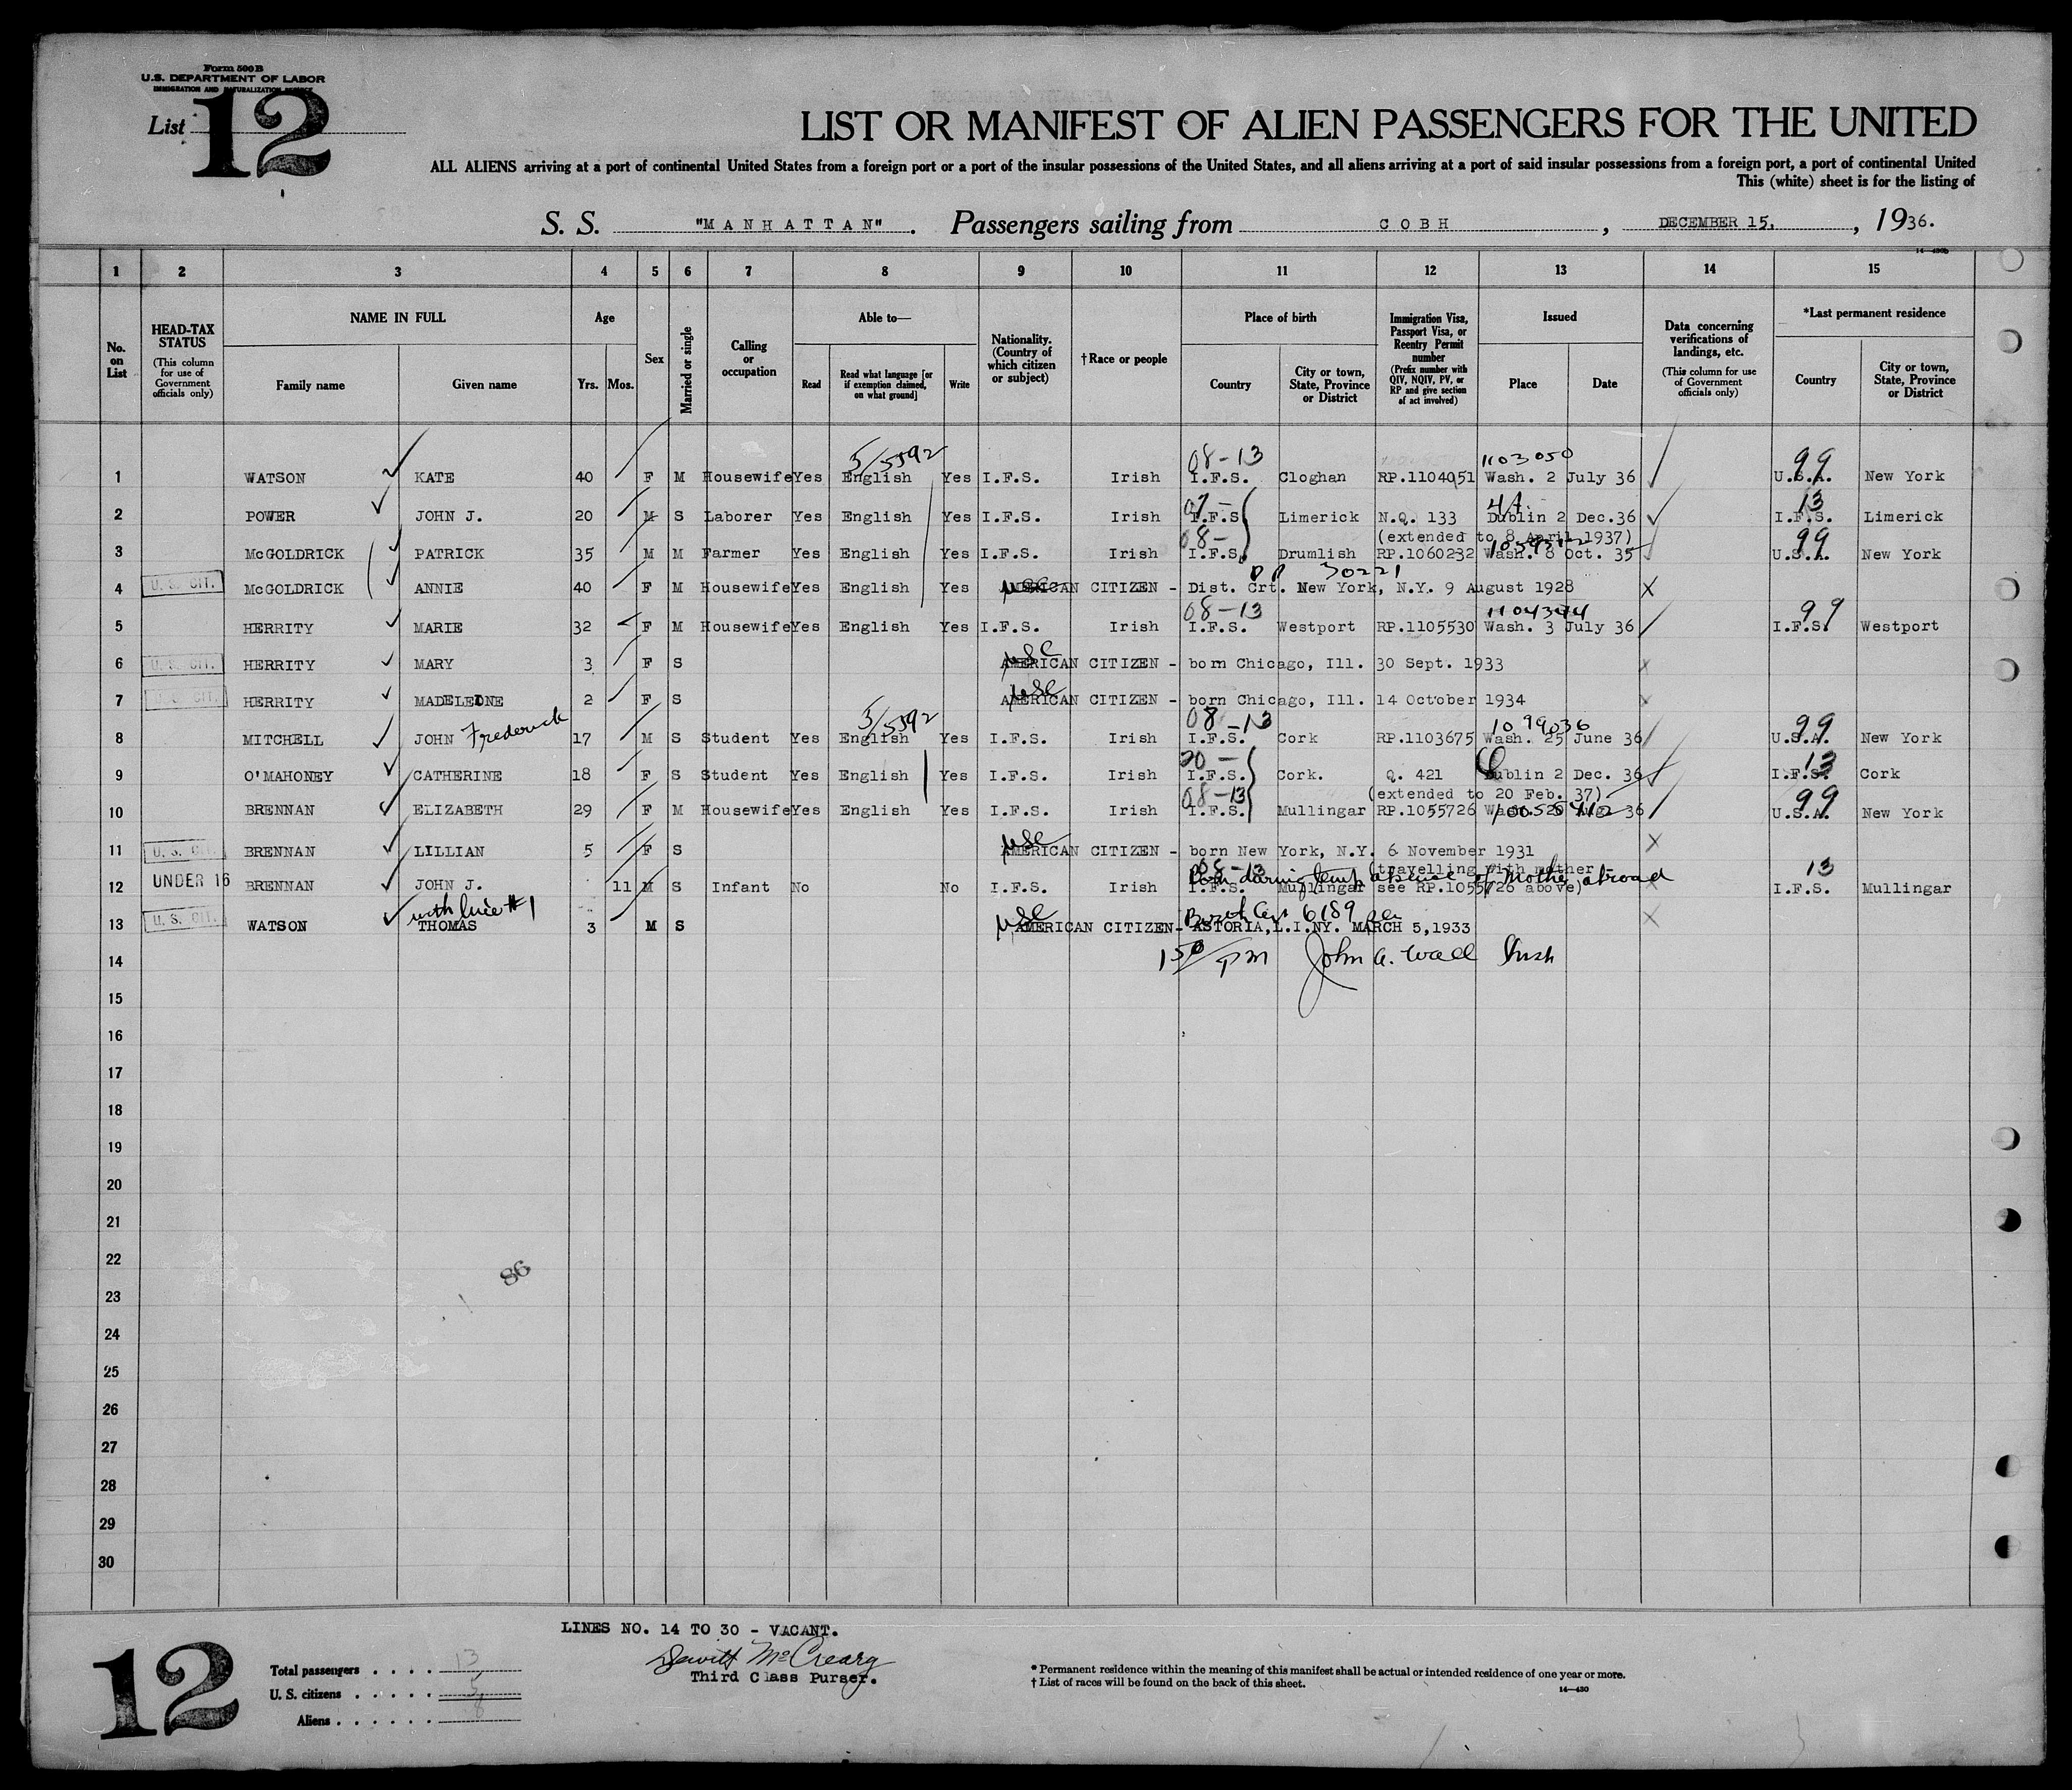 Form 500 B
U.S. DEPARTMENT OF LABOR
IMMIGRATION AND NATURALIZATION SERVICE
List 12
LIST OR MANIFEST OF ALIEN PASSENGERS FOR THE UNITED
ALL ALIENS arriving at a port of continental United States from a foreign port or a port of the insular possessions of the United States, and all aliens arriving at a port of said insular possessions from a foreign port, a port of continental United
This (white) sheet is for the listing of
S. S. "MANHATTAN". Passengers sailing from COBH, DECEMBER 15, 1936.
1 2 3 4 5 6 7 8 9 10 11 12 13 14 15
No. on List
HEAD-TAX STATUS (This column for use of Government officials only)
NAME IN FULL Family name Given name
Age Yrs. Mos.
Sex
Married or single
Calling or occupation
Able to— Read Read what language [or if exemption claimed, on what ground] Write
Nationality. (Country of which citizen or subject)
†Race or people
Place of birth Country City or town, State, Province or District
Immigration Visa, Passport Visa, or Reentry Permit number (Prefix number with QIV, NQIV, PV, or RP and give section of act involved)
Issued Place Date
Data concerning verifications of landings, etc. (This column for use of Government officials only)
*Last permanent residence Country City or town, State, Province or District
5/5592 08-13 1103050 99
1 WATSON KATE 40 F M Housewife Yes English Yes I.F.S. Irish I.F.S. Cloghan RP.1104051 Wash. 2 July 36 U.S.A. New York
13
2 POWER JOHN J. 20 M S Laborer Yes English Yes I.F.S. Irish I.F.S. Limerick N.Q. 133 Dublin 2 Dec.36 I.F.S. Limerick
(extended to 8 April 1937)
08- 99
3 McGOLDRICK PATRICK 35 M M Farmer Yes English Yes I.F.S. Irish I.F.S. Drumlish RP.1060232 Wash. 8 Oct. 35 U.S.A. New York
30221
U. S. CIT. 4 McGOLDRICK ANNIE 40 F M Housewife Yes English Yes AMERICAN CITIZEN - Dist. Crt. New York, N.Y. 9 August 1928
08-13 1104344 99
5 HERRITY MARIE 32 F M Housewife Yes English Yes I.F.S. Irish I.F.S. Westport RP.1105530 Wash. 3 July 36 I.F.S. Westport
usc
U. S. CIT. 6 HERRITY MARY 3 F S AMERICAN CITIZEN - born Chicago, Ill. 30 Sept. 1933
usc
U. S. CIT. 7 HERRITY MADELEINE 2 F S AMERICAN CITIZEN - born Chicago, Ill. 14 October 1934
5/5592 08-13 1099036 99
8 MITCHELL JOHN Frederick 17 M S Student Yes English Yes I.F.S. Irish I.F.S. Cork RP.1103675 Wash. 25 June 36 U.S.A. New York
20- 13
9 O'MAHONEY CATHERINE 18 F S Student Yes English Yes I.F.S. Irish I.F.S. Cork. Q. 421 Dublin 2 Dec. 36 I.F.S. Cork
(extended to 20 Feb. 37)
08-13 99
10 BRENNAN ELIZABETH 29 F M Housewife Yes English Yes I.F.S. Irish I.F.S. Mullingar RP.1055726 Wash. 20 Aug. 36 U.S.A. New York
usc
U. S. CIT. 11 BRENNAN LILLIAN 5 F S AMERICAN CITIZEN - born New York, N.Y. 6 November 1931
08-13 (travelling with mother - 13
Born during temp absence of mother abroad
UNDER 16 12 BRENNAN JOHN J. 11 M S Infant No No I.F.S. Irish I.F.S. Mullingar see RP.1055726 above) I.F.S. Mullingar
with line #1 usc Birth Cert 6189
U. S. CIT. 13 WATSON THOMAS 3 M S AMERICAN CITIZEN- ASTORIA,L.I.NY. MARCH 5,1933
14 150/PM John A. Wall
15
16
17
18
19
20
21
22
86
23
24
25
26
27
28
29
30
LINES NO. 14 TO 30 - VACANT.
Dewitt McCreary
Third Class Purser.
12
Total passengers . . . . 13
U. S. citizens . . . . . 5
Aliens . . . . . . 8
* Permanent residence within the meaning of this manifest shall be actual or intended residence of one year or more.
† List of races will be found on the back of this sheet.
14—430